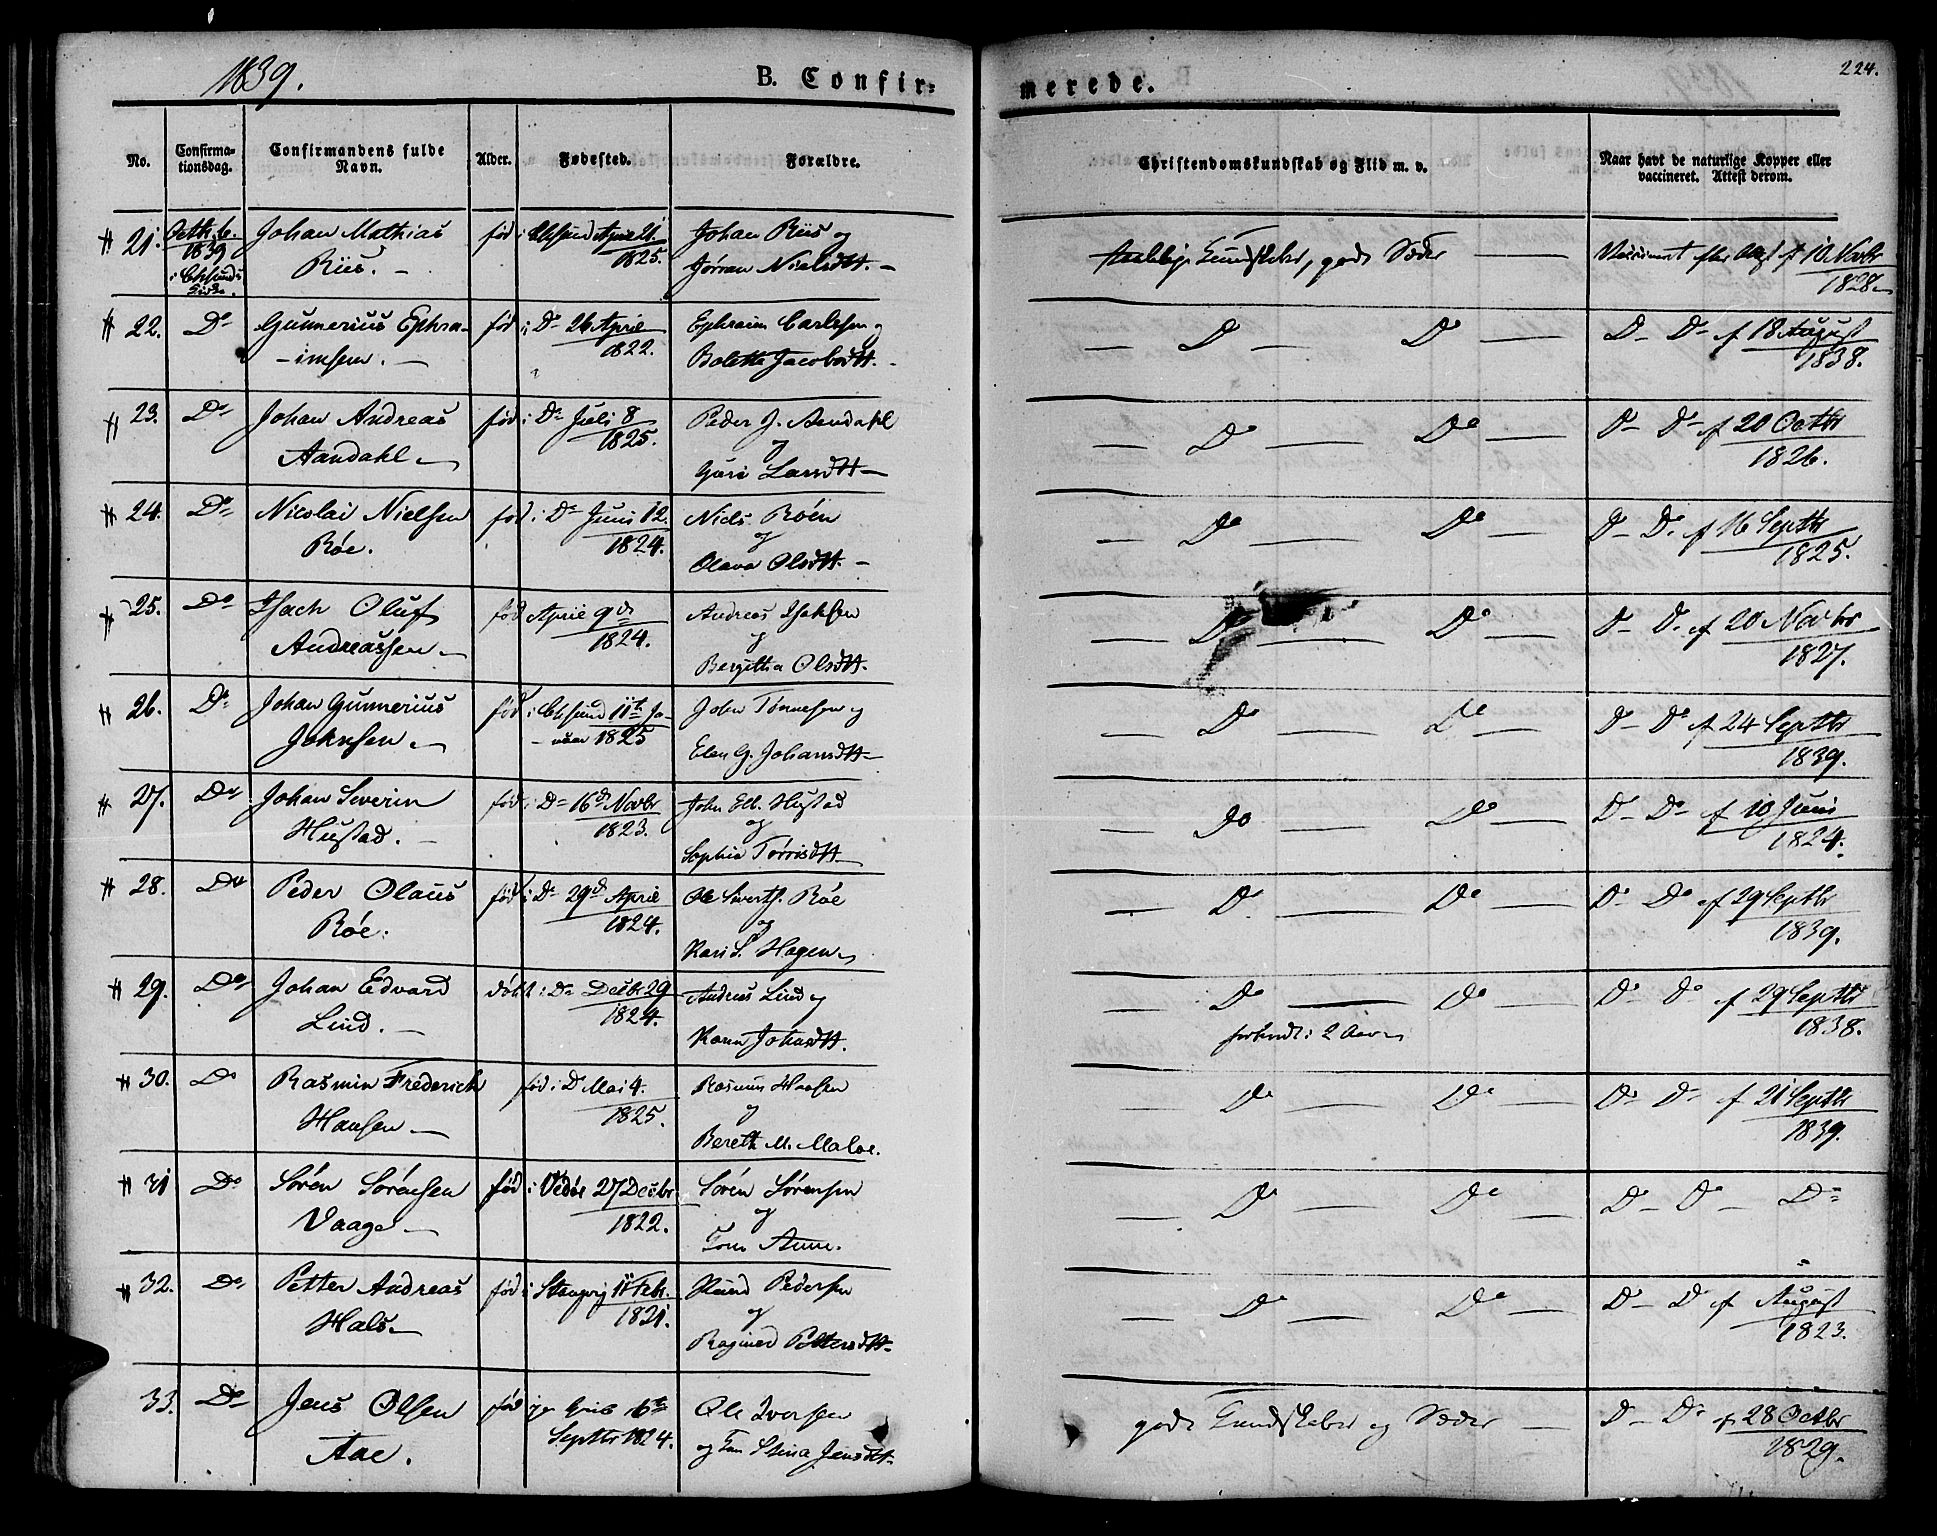 1839.
B. Confirmerede.
224.
No.
Confirmationsdag.
Confirmandens fulde Navn.
Alder.
Fødested.
Forældre.
Christendomskundskab og Flid m. v.
Naar havt de naturlige Kopper eller vaccineret. Attest derom.
21. Octbr 6. 1839 Johan Mathias Riis. — fød i April 1825. Johan Riis og Jørran Nielsdtt. — Kundskaber, gode Sæder — 10 Novbr 1828
22. Do Gunnerius Ephraimsen. — fød i Do 26 April 1822. Ephraim Carlsen og Boletta Jacobsdtt. — Do — Do — D— Do af 18 August 1838.
23. Do Johan Andreas Aandahl — fød i Do Juli 8 1825. Peder J. Aandahl og Guri Larsdtt — Do — Do — D— Do af 20 Octbr 1826.
24. Do Nicolai Nielsen Røe. fød i Do Juni 12. 1824. Niels Røen og Olava Olsdtt. — Do — Do — D— Do af 16 Septbr 1825.
25. Do Isach Oluf Andreassen — fød April 9de 1824. Andreas Isaksen og Bergitha Olsdtt. — Do — Do — D— Do af 20 Novbr 1827.
26. Do Johan Gunnerius Johnsen — fød i 11te Januar 1825 John Tønnesen og Elen G. Johansdtt — Do — Do — D— Do af 24 Septbr 1839.
27. Do Johan Severin Hustad. — fød i Do 16de Novbr 1823. John Ell. Hustad og Sophia Tørrisdtt — Do — Do — D— Do af 10 Juni 1824.
28. Do Peder Olaus Røe. fød i Do 29de April 1824. Ole Siverts. Røe og Kari S. Hagen — Do — Do — Do Do af 29 Septbr 1839.
29. Do Johan Edvard Lind. — døbt i Do Decbr 29 1824. Andreas Lind og Karen Johansdtt. — Do — Do — D— Do af 29 Septbr 1838.
2 Aar
30. Do Rasmin Frederich Hansen — fød i Do Mai 4. 1825. Rasmus Hansen og Bereth M. Maloe. — Do — Do — Do Do af 21 Septbr 1839.
31 Do Søren Sørensen Vaage — fød i Vedøe 27 Decbr 1822. Søren Sørensen og Anne. — Do — Do — D— Do Do
32. Do Petter Andreas Hals — fød i 11 Febr. 1821. Knud Pedersen og Ragnild Pettersdtt — Do — Do — D— Do af August 1823.
33. Do Jens Olsen Aae. fød 16de Septbr 1824. Ole Iversen og Stina Jensdtt — gode Kundskaber og Sæder — D— Do af 28 Octbr 1829.